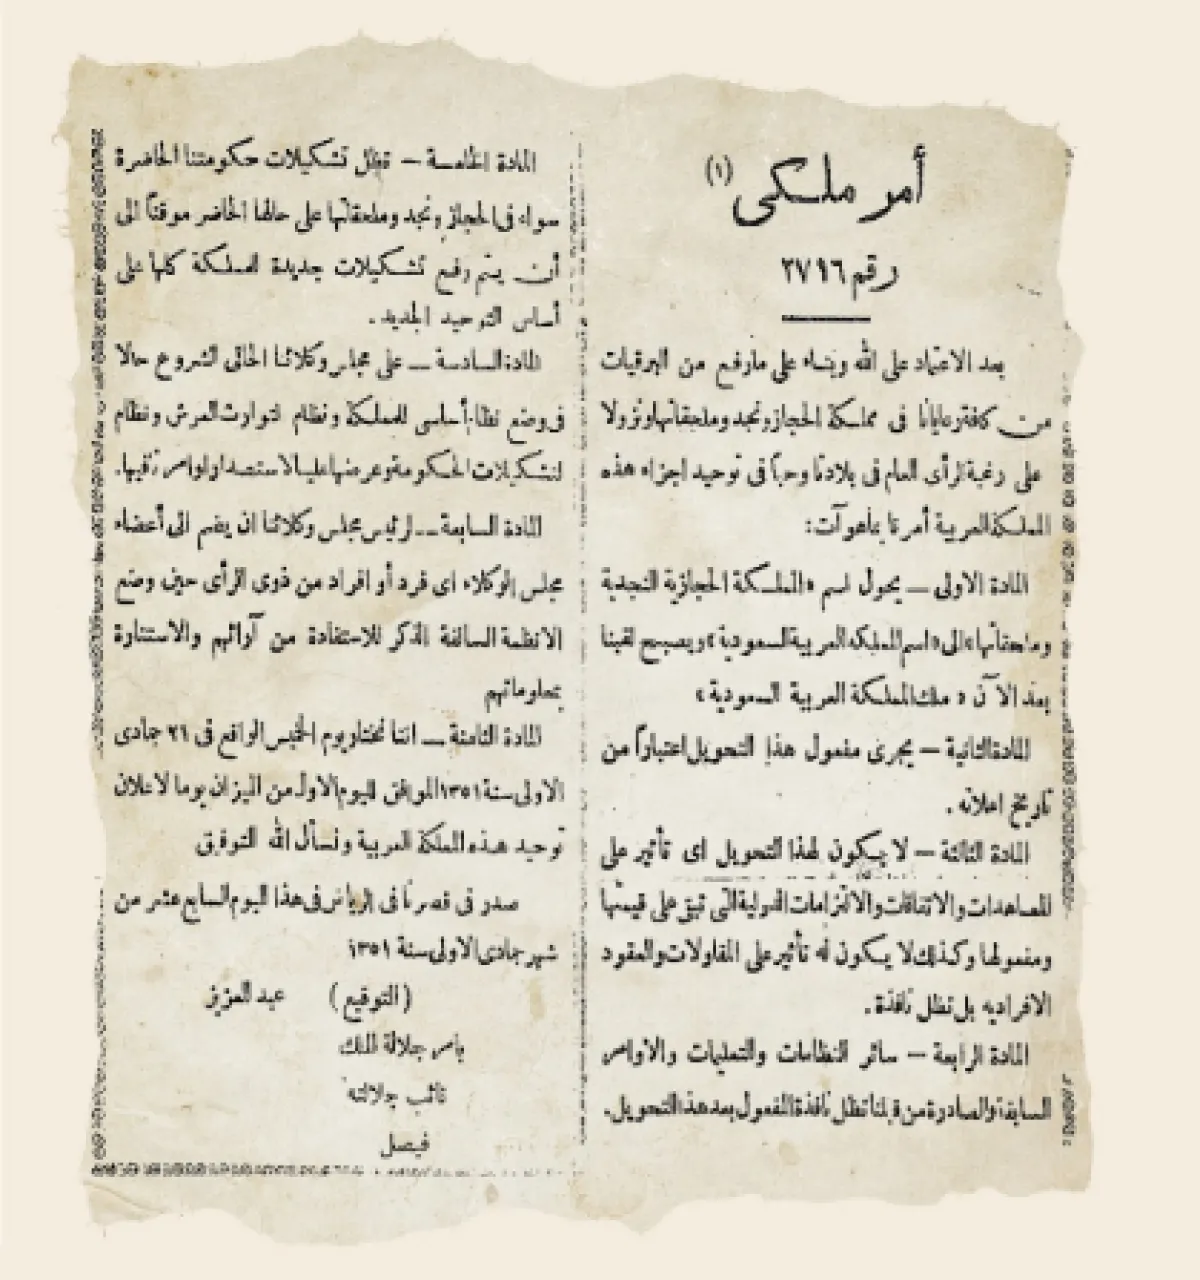 أمر ملكى (١)
رقم ٢٧١٦
بعد الاعتماد على الله وبناء على مارفع من البرقيات
من كافة رعايانا فى مملكة الحجاز ونجد وملحقاتها ونزولا
على رغبة الرأى العام فى بلادنا وحبا فى توحيد اجزاء هذه
المملكة العربية أمرنا بما هو آت:
المادة الاولى — يحول اسم «المملكة الحجازية النجدية
وملحقاتها» الى «اسم المملكة العربية السعودية» ويصبح لقبنا
بعد الآن «ملك المملكة العربية السعودية»
المادة الثانية — يجرى مفعول هذا التحويل اعتباراً من
تاريخ اعلانه .
المادة الثالثة — لا يكون لهذا التحويل اى تأثير على
المعاهدات والاتفاقات والالتزامات الدولية التى تبقى على قيمتها
ومفعولها وكذلك لا يكون له تأثير على المقاولات والعقود
الافراديه بل تظل نافذة .
المادة الرابعة — سائر النظامات والتعليمات والاوامر
السابقة والصادرة من قبلنا تظل نافذة المفعول بعد هذا التحويل.
المادة الخامسة — تظل تشكيلات حكومتنا الحاضرة
سواء فى الحجاز ونجد وملحقاتها على حالها الحاضر موقتاً الى
أن يتم رفع تشكيلات جديدة للمملكة كلها على
أساس التوحيد الجديد .
المادة السادسة — على مجلس وكلائنا الحالى الشروع حالا
فى وضع نظام أساسى للمملكة ونظام لتوارث العرش ونظام
لتشكيلات الحكومة وعرضها علينا لاستصدار اوامرنا فيها.
المادة السابعة — لرئيس مجلس وكلائنا ان يضم الى أعضاء
مجلس الوكلاء اى فرد أو افراد من ذوى الرأى حين وضع
الانظمة السالفة الذكر للاستفادة من آرائهم والاستنارة
بمعلوماتهم
المادة الثامنة — اننا نختار يوم الخميس الواقع فى ٢١ جمادى
الاولى سنة ١٣٥١ الموافق لليوم الاول من الميزان يوما لاعلان
توحيد هذه المملكة العربية ونسأل الله التوفيق
صدر فى قصرنا فى الرياض فى هذا اليوم السابع عشر من
شهر جمادى الاولى سنة ١٣٥١
(التوقيع) عبد العزيز
بامر جلالة الملك
نائب جلالته
فيصل